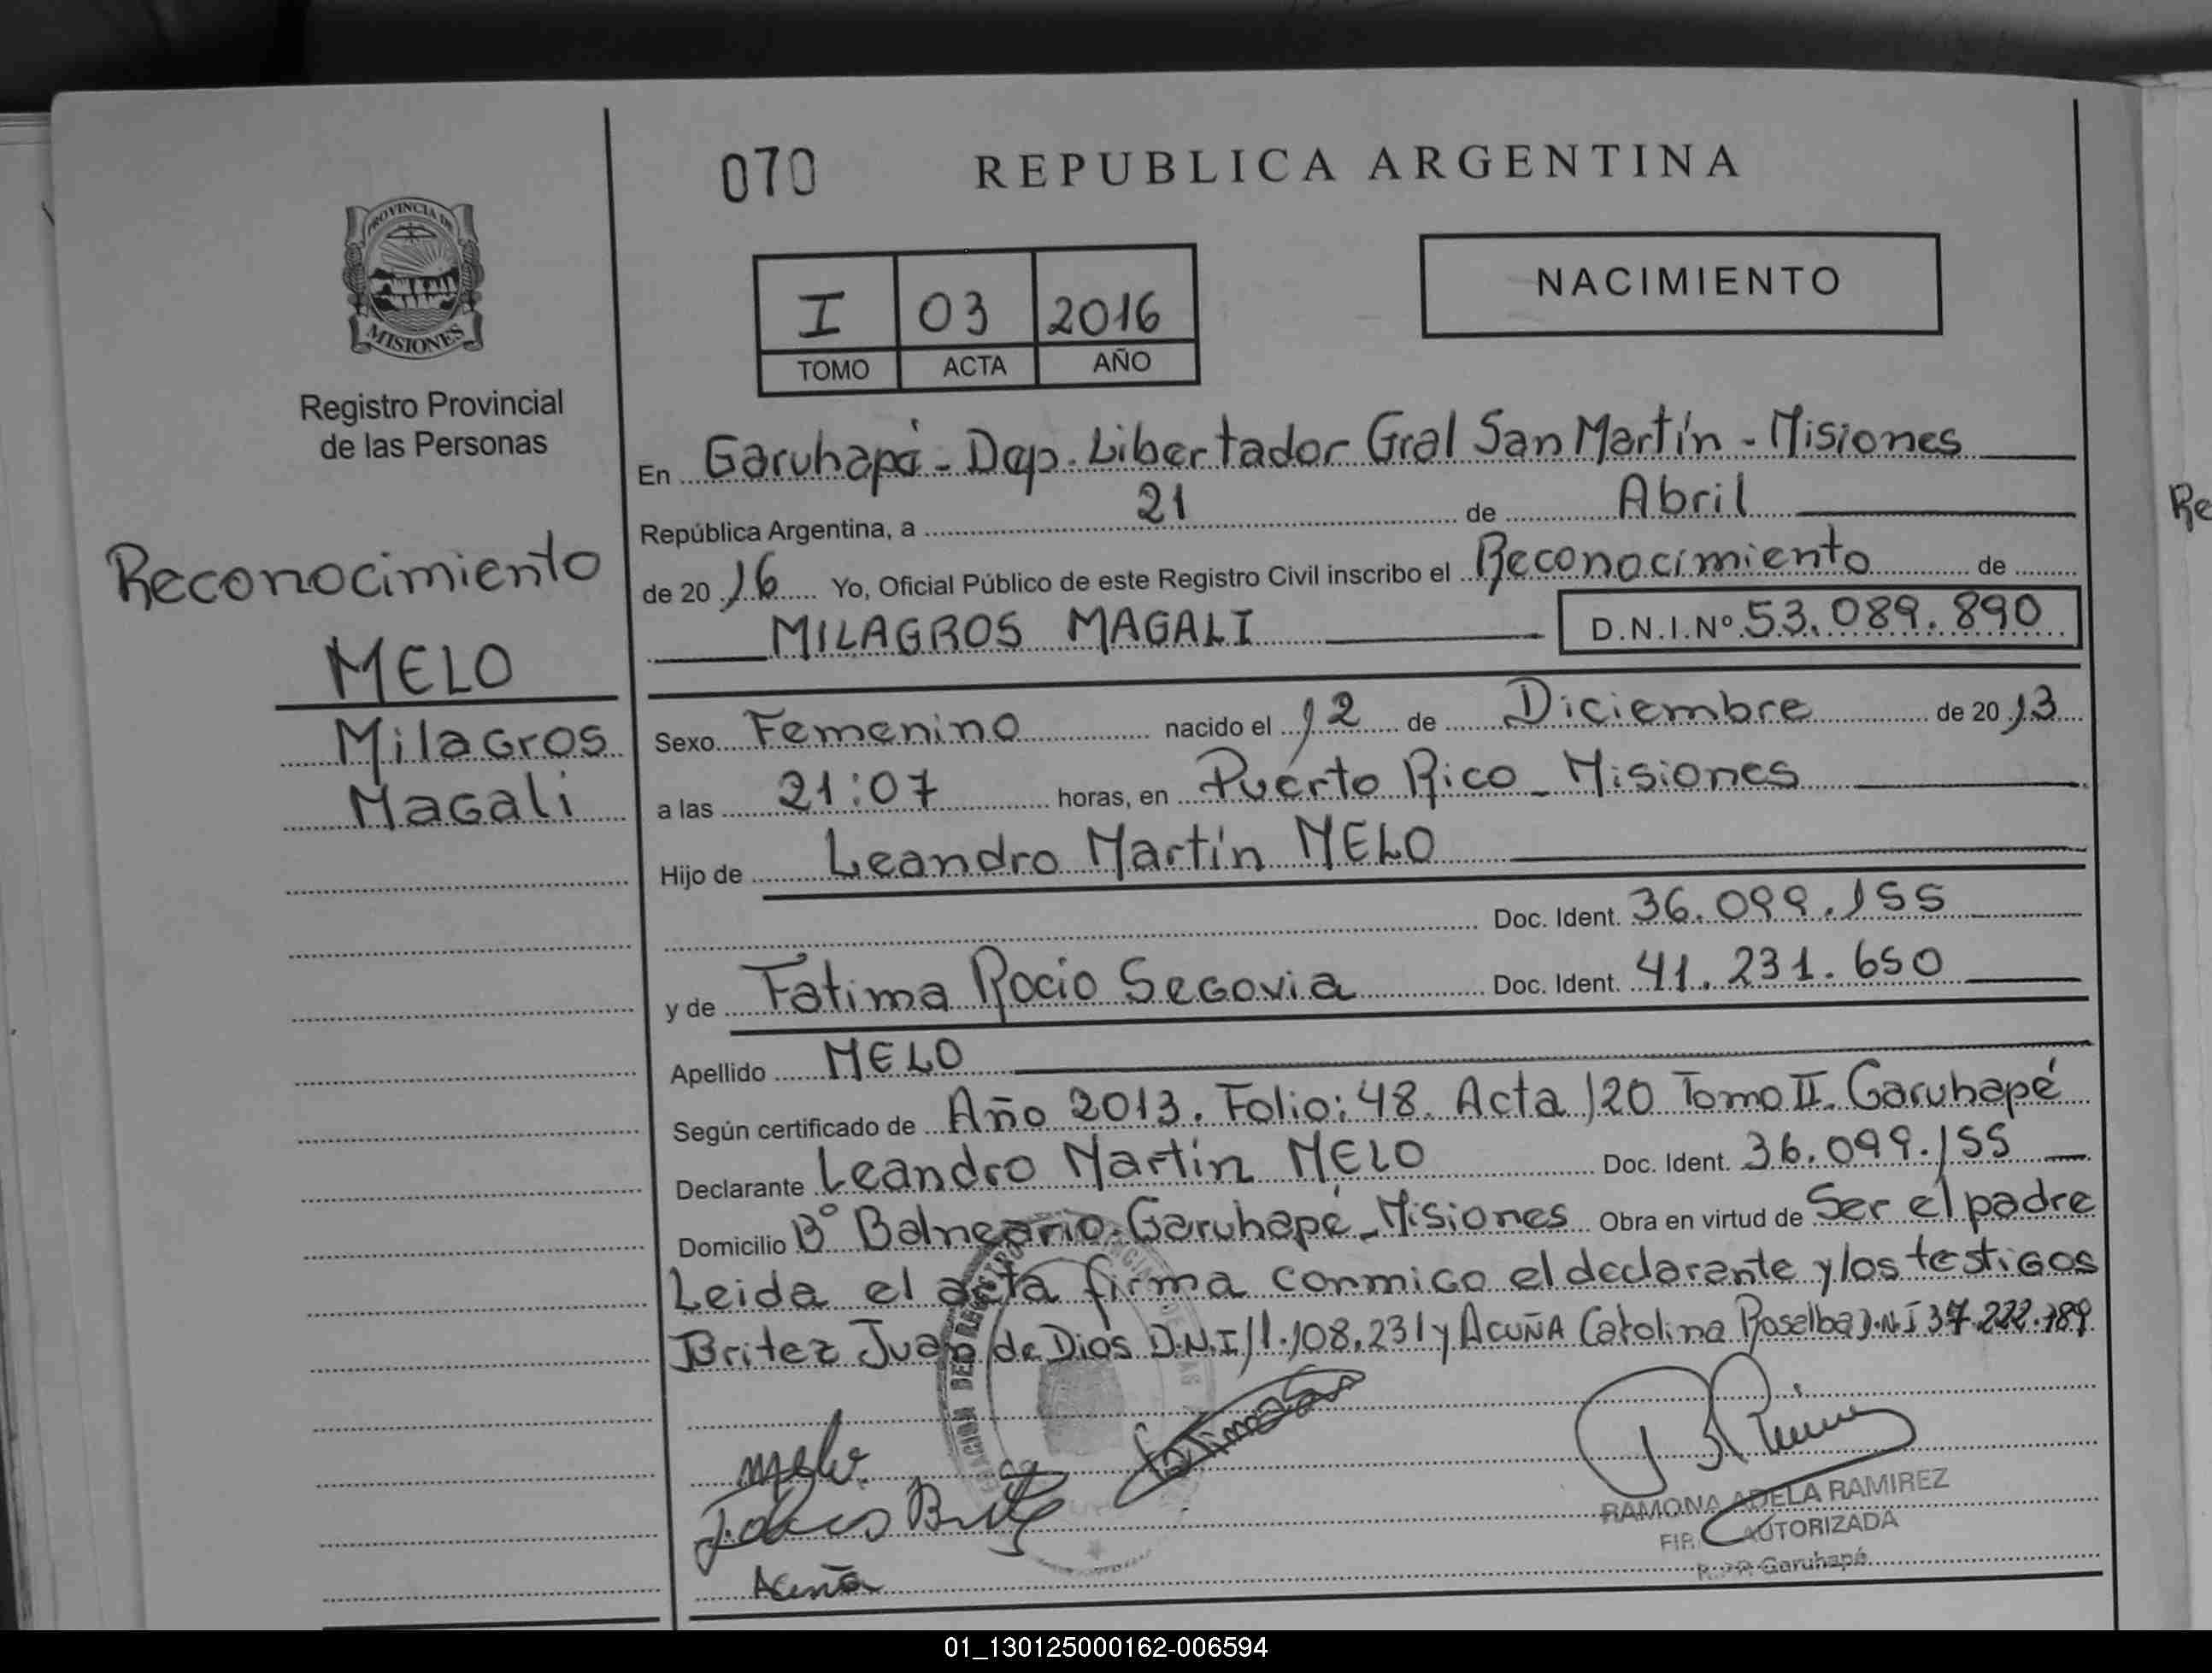 070
REPUBLICA ARGENTINA
PROVINCIA DE
MISIONES
Registro Provincial
de las Personas
I 03 2016
TOMO ACTA AÑO
NACIMIENTO
En Garuhapé - Dep. Libertador Gral San Martín - Misiones
República Argentina, a 21 de Abril
de 20 16 Yo, Oficial Público de este Registro Civil inscribo el Reconocimiento de
MILAGROS MAGALI D.N.I.Nº 53.089.890
Reconocimiento
MELO
Milagros
Magali
Sexo Femenino nacido el 12 de Diciembre de 20 13
a las 21:07 horas, en Puerto Rico - Misiones
Hijo de Leandro Martín MELO
Doc. Ident. 36.099.155
y de Fatima Rocio Segovia Doc. Ident. 41.231.650
Apellido MELO
Según certificado de Año 2013. Folio: 48. Acta 120 Tomo II. Garuhapé
Declarante Leandro Martín MELO Doc. Ident. 36.099.155
Domicilio Bº Balneario. Garuhapé - Misiones Obra en virtud de Ser el padre
Leida el acta firma conmigo el declarante y los testigos
Britez Juan de Dios D.N.I 11.108.231 y Acuña Catolina Roselba D.N.I 37.222.789
Melo
Acuña
RAMONA ADELA RAMIREZ
AUTORIZADA
Garuhapé
Re
01_130125000162-006594